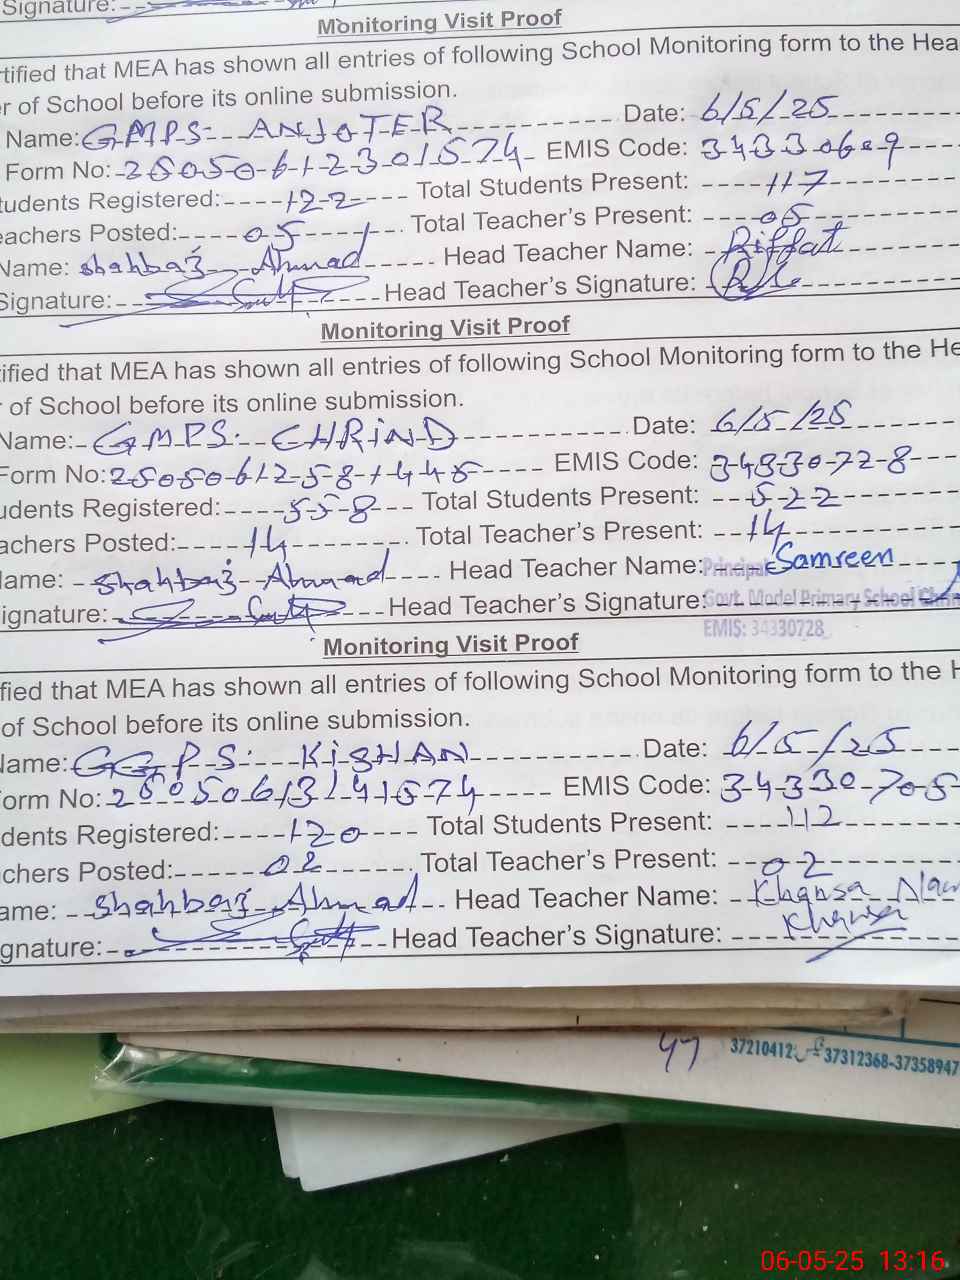 Signature:
Monitoring Visit Proof
rtified that MEA has shown all entries of following School Monitoring form to the Hea
er of School before its online submission.
Name: GMPS ANJOTER Date: 6/5/25
Form No: 25050612301574 EMIS Code: 34330609
tudents Registered: 122 Total Students Present: 117
eachers Posted: 05 Total Teacher's Present: 05
Name: Shahbaz Ahmad Head Teacher Name: Riffat
Signature: Head Teacher's Signature:
Monitoring Visit Proof
tified that MEA has shown all entries of following School Monitoring form to the He
r of School before its online submission.
Name: GMPS. CHRIND Date: 6/5/25
Form No: 25050612581445 EMIS Code: 34330728
udents Registered: 558 Total Students Present: 522
achers Posted: 14 Total Teacher's Present: 14
Name: Shahbaz Ahmad Head Teacher Name: Principal Samreen
ignature: Head Teacher's Signature: Govt. Model Primary School
EMIS: 34330728
Monitoring Visit Proof
fied that MEA has shown all entries of following School Monitoring form to the H
of School before its online submission.
Name: GGPS KISHAN Date: 6/5/25
orm No: 25050613141574 EMIS Code: 34330705
dents Registered: 120 Total Students Present: 112
chers Posted: 02 Total Teacher's Present: 02
ame: Shahbaz Ahmad Head Teacher Name: Khansa
gnature: Head Teacher's Signature: Khansa
47 37210412 37312368-37358947
06-05-25 13:16